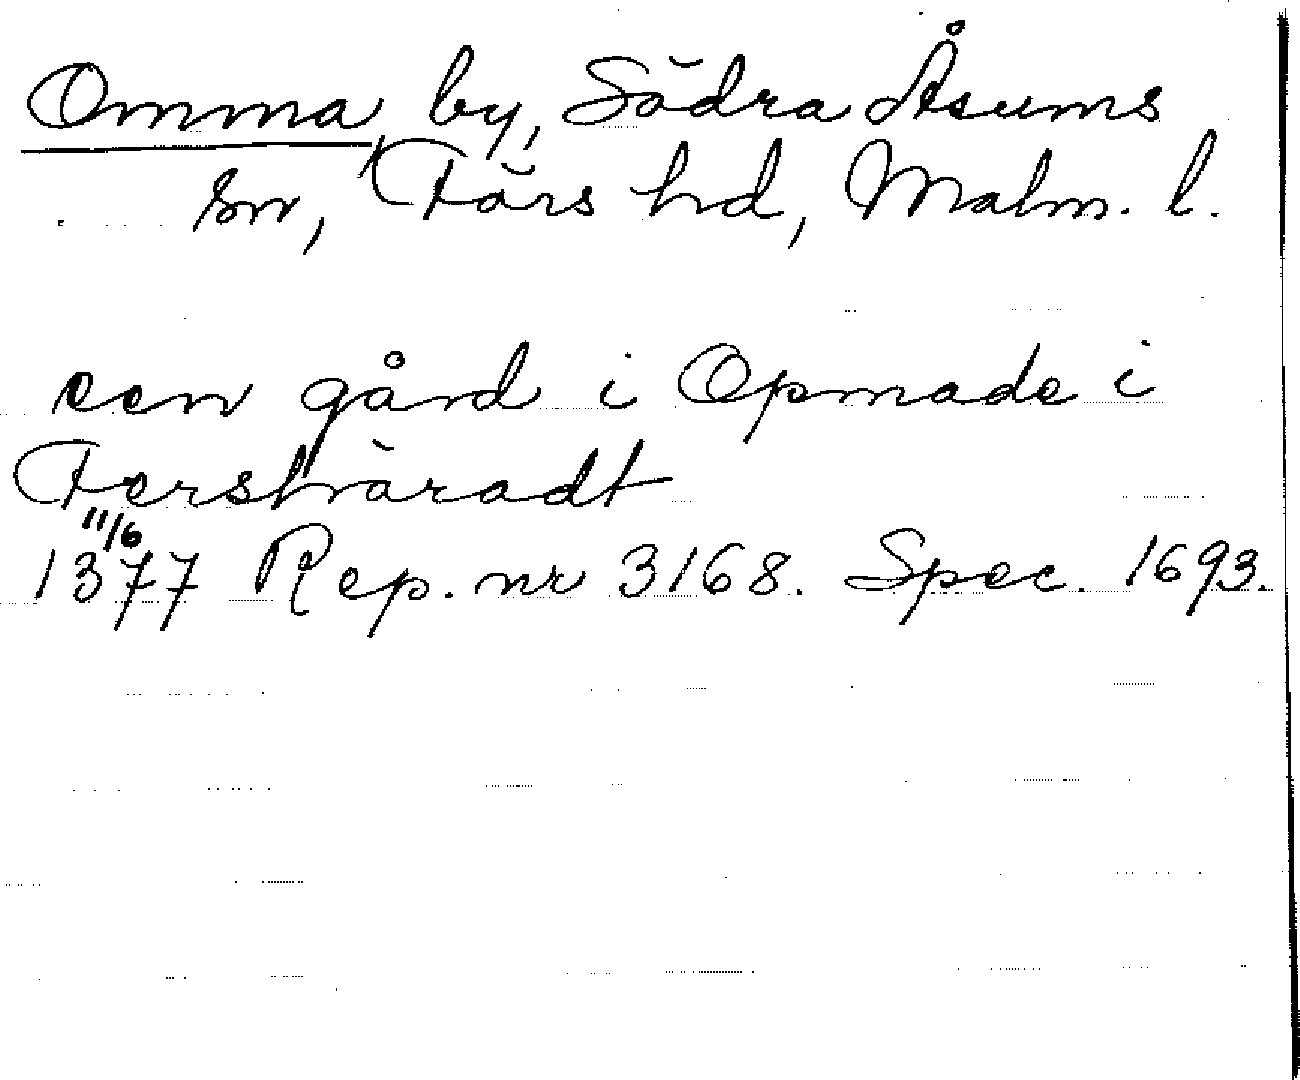 Omma, by, Södra Åsums
sn, Färs hd, Malm. l.
een gård i Opmade i
Fershäradt
11/6
1377 Rep. nr 3168. Spec. 1693.